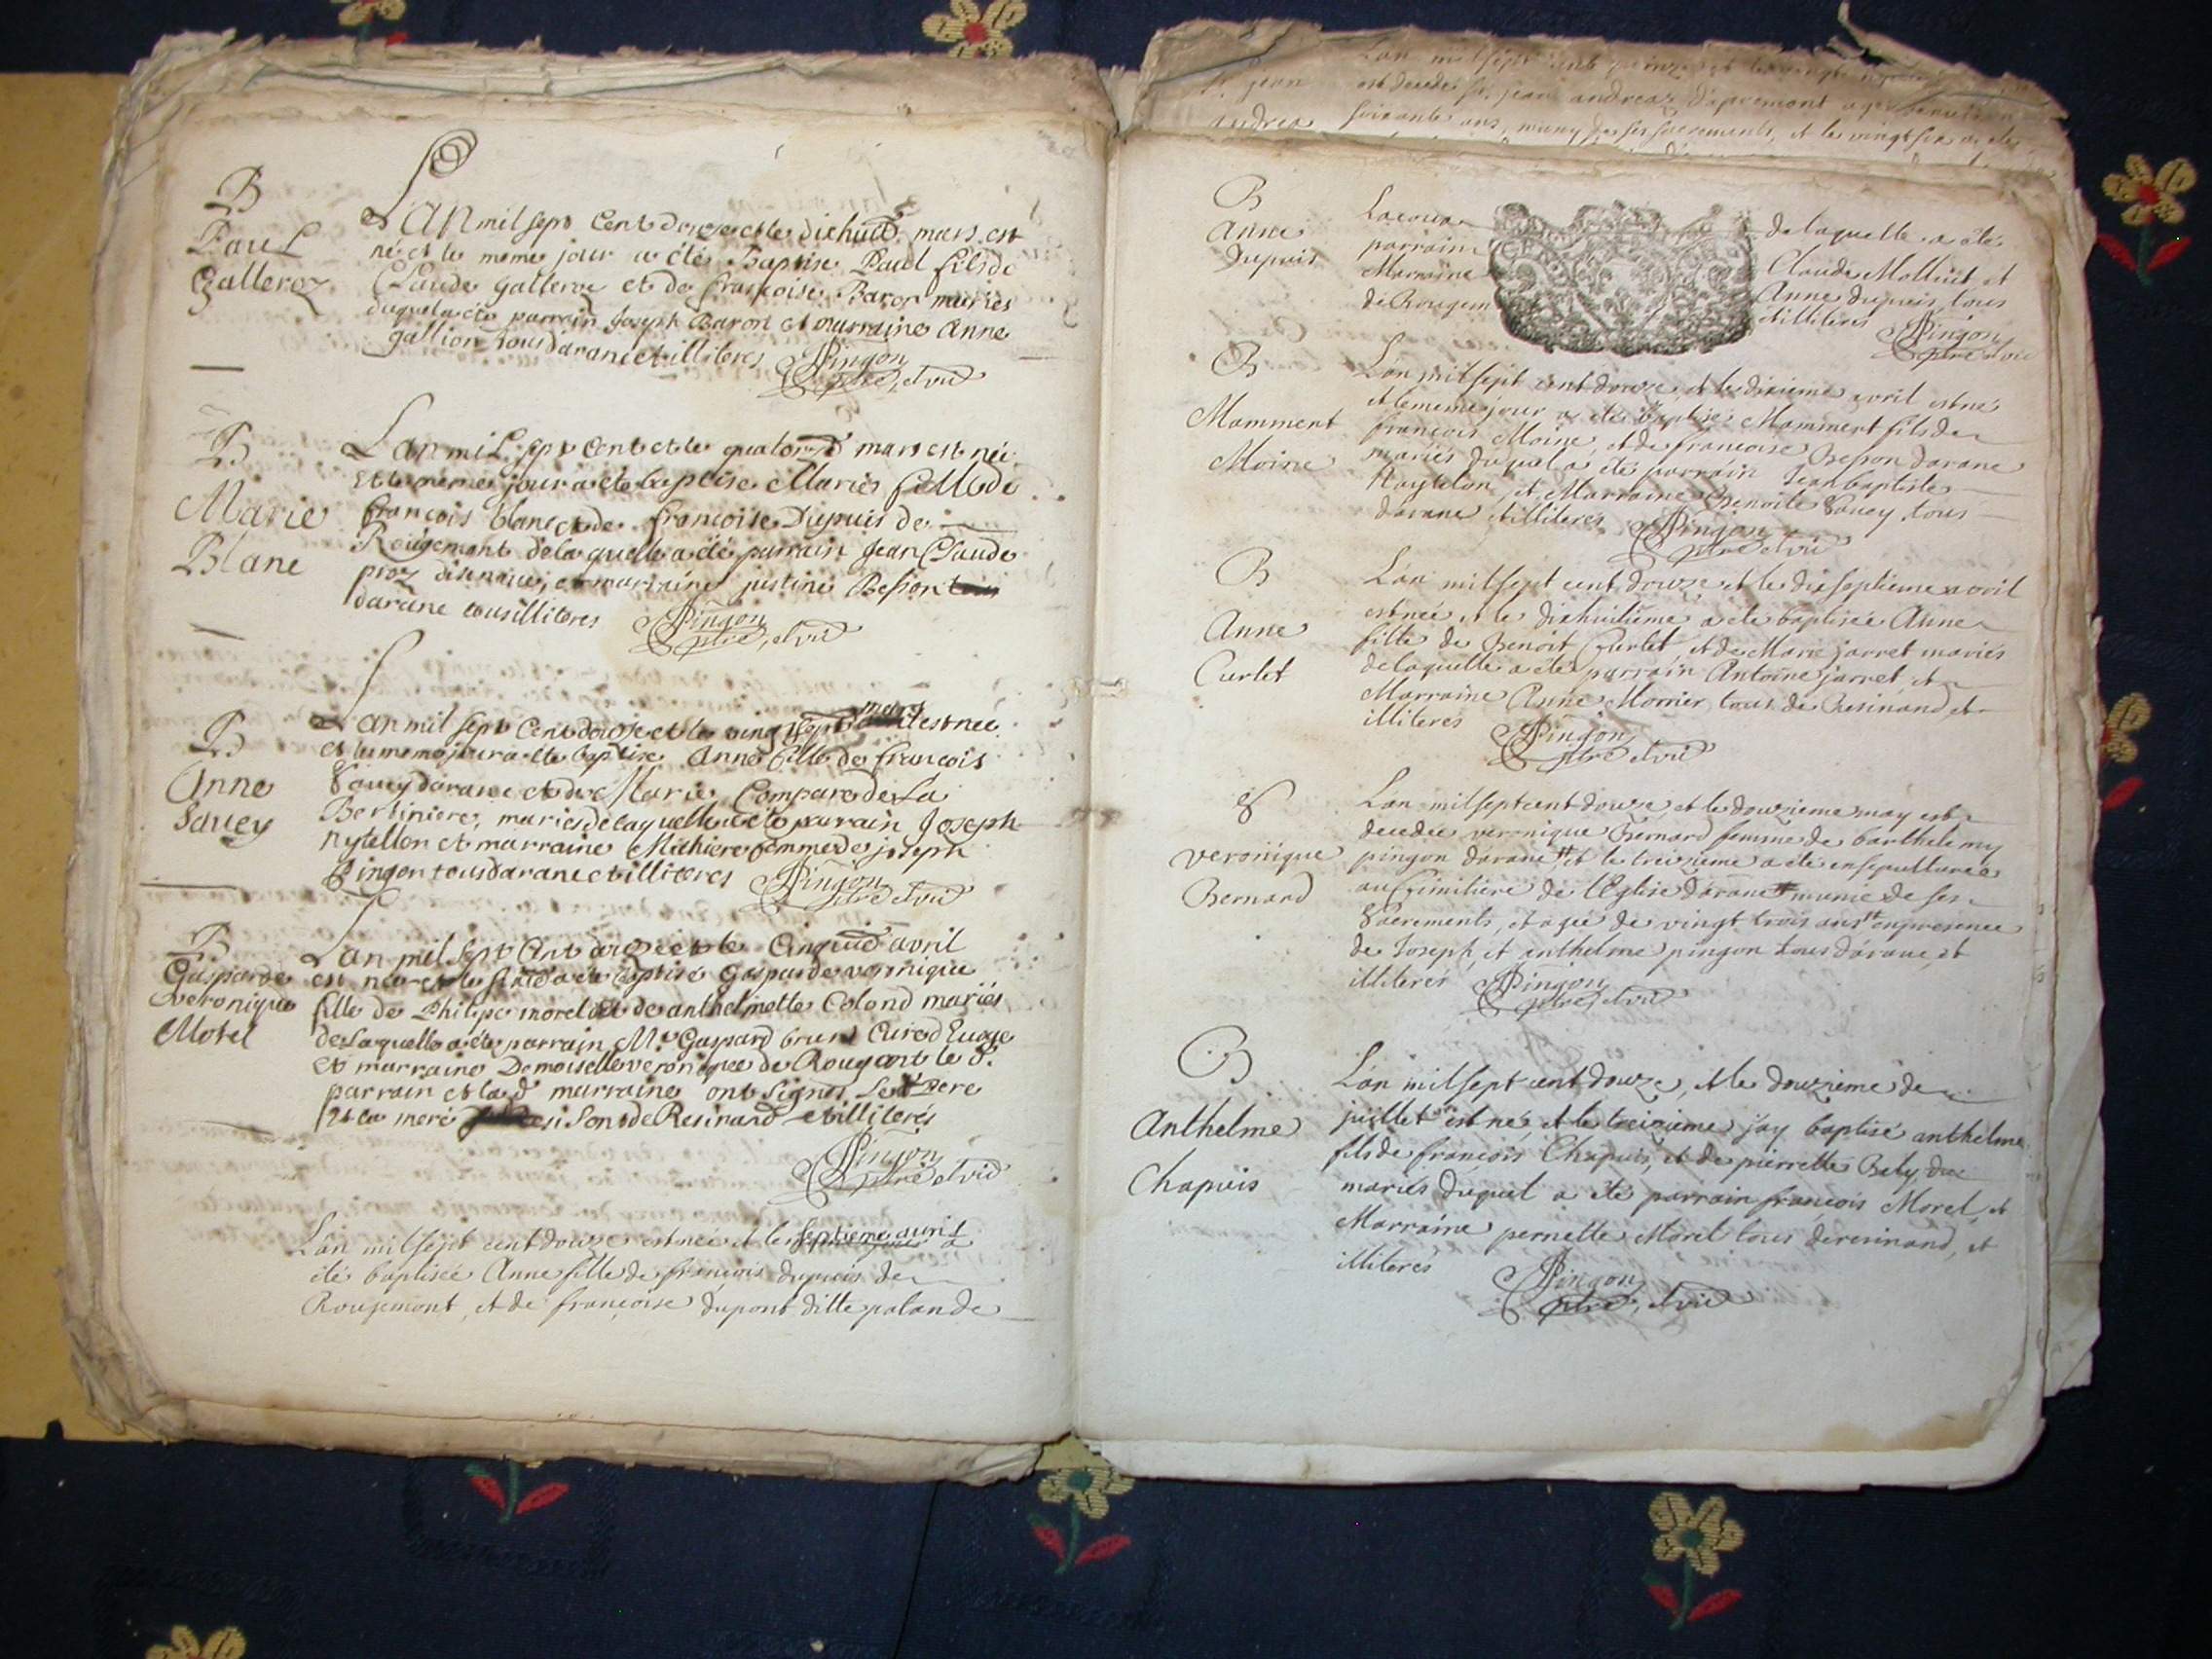 B
Paul
Galleroz
Lan mil sept Cent douze et le dixhuit mars est
né et le meme jour a été Baptise Paul fils de
Claude galleroz et de francoise Baron mariés
duquel a été parrain Joseph Baron et marraine anne
gallion tous darane et illiteres Pingon
ptre, et vic
B
Marie
Blanc
Lan mil sept Cent et le quatorze mars est née
et le meme jour a été baptisé Marie fille de
francois blanc et de francoise Dupuis de
Rougemont de la quelle a été parrain Jean Claude
proz disenave, et marraine justine Besson
darane tous illiteres Pingon
ptre, et vic
B
Anne
Savey
mars
Lan mil sept Cent douze et le vingt sept est née
et le meme jour a été baptise Anne fille de francois
Savey darane et de Marie Compare de La
Bertiniere, mariés de laquelle a été parrain Joseph
nytellon et marraine Mithiere femme de joseph
Pingon tous darane et illiteres Pingon
ptre et vic
B
Gasparde
veronique
Morel
Lan mil sept Cent douze et le Cinquie avril
est née et le a été baptisé Gasparde veronique
fille de Philipe morel et de anthelmette Colond mariés
de laquelle a été parrain Mre Gaspard brun Curé d
et marraine Demoiselle veronique de Rougant le d.
parrain et la d marraine ont Signés Le d Pere
et la mere Sont de Resinand et illiterés
Pingon
ptre et vic
L'an mil sept cent douze est née et le septieme avril a
été baptisée Anne fille de francois dupuis de
Rougemont, et de francoise dupont ditte palande
L'an mil sept cent et le vingt
est decedé sr. jean andreaz d'apremont agé
soixante ans, muny de ses sacrements, et le vingt six a été
Sr. jean
andrea
B
Anne
Dupuis
de laquelle a été
parrain Claude Molliet et
Marraine Anne dupuis, tous
de Rougem et illiteres Pingon
ptre et vic
B
Mamment
Moine
L'an mil sept cent douze, et le dixieme avril est né
et le meme jour a été baptisé Mamment fils de
francois Moine, et de francoise Besson darane
mariés duquel a été parrain Jean baptiste
Naytelon, et Marraine Benoite Savey, tous
darane et illiteres Pingon
ptre et vic
B
Anne
Curlet
L'an mil sept cent douze, et le diseptieme avril
est née et le dixhuitieme a été baptisée Anne
fille de Benoit Curlet, et de Marie jarret mariés
de laquelle a été parrain Antoine jarret, et
Marraine Anne Mornier, tous de Resinand, et
illiteres Pingon
ptre et vic
S
veronique
Bernard
L'an mil sept cent douze, et le douzieme may est
decedée veronique Bernard femme de barthelemy
pingon darane # et le treizieme a été ensepulturée
au Cimitiere de l'Eglise darane # munie de ses
Sacrements, et agée de vingt trois ans # en presence
de Joseph, et anthelme pingon tous darane, et
illiterés Pingon
ptre, et vic
B
Anthelme
Chapuis
L'an mil sept cent douze, et le douzieme de
juillet est né, et le treizieme j'ay baptisé anthelme
fils de francois Chapuis, et de pierrette Bely
mariés duquel a été parrain francois Morel, et
Marraine pernette Morel tous deresinand, et
illiterés Pingon
ptre, et vic